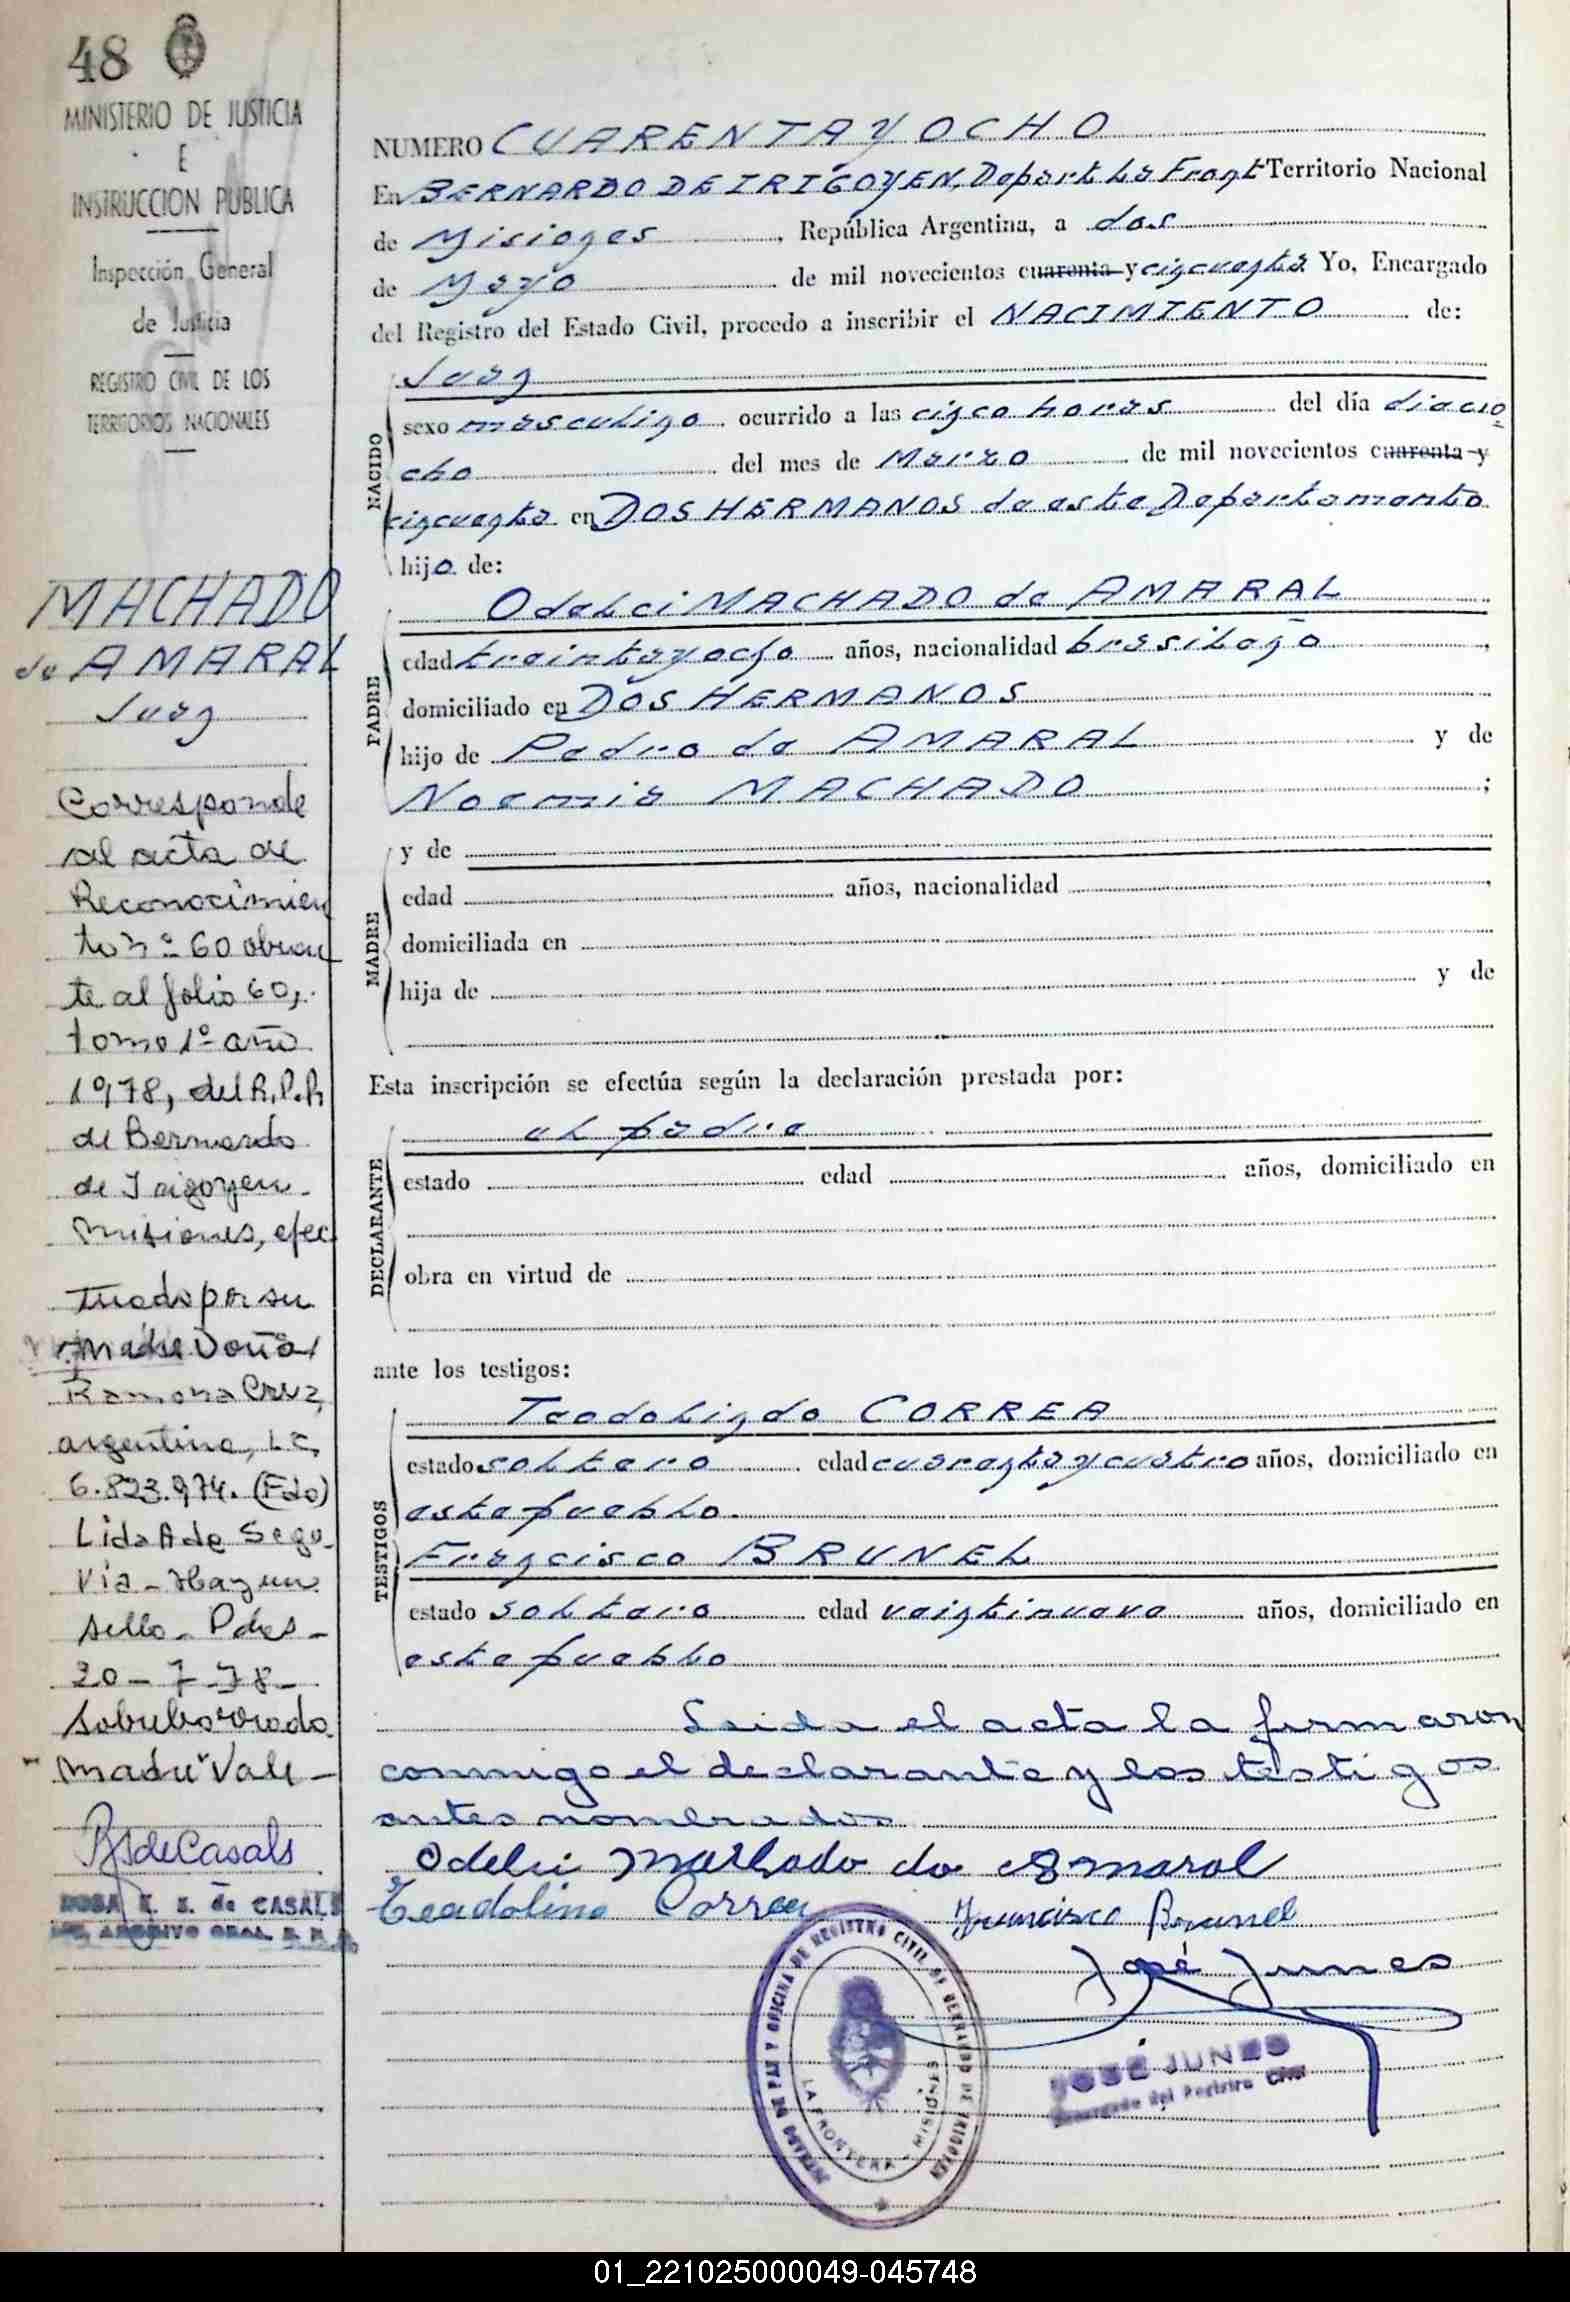 48
MINISTERIO DE JUSTICIA
E
INSTRUCCION PUBLICA
Inspección General
de Justicia
REGISTRO CIVIL DE LOS
TERRITORIOS NACIONALES
MACHADO
de AMARAL
Juan
Corresponde
al acta de
Reconocimien
to nº 60 obran
te al folio 60,
tomo 1º año
1978, del R.P.P.
de Bernardo
de Irigoyen.
Misiones, efec
tuado por su
madre Doña
Ramona Cruz,
argentina, L.C.
6.823.974. (Fdo)
Lida A de Sego
via - Hay un
sello - Pdas -
20 - 7 - 78 -
Sobreborrado
"madre" Vale -
RSdeCasals
ROSA E. S. de CASALS
NUMERO CUARENTA Y OCHO
En BERNARDO DE IRIGOYEN, Depart La Front Territorio Nacional
de Misiones, República Argentina, a dos
de Mayo de mil novecientos cuarenta y cincuenta Yo, Encargado
del Registro del Estado Civil, procedo a inscribir el NACIMIENTO de:
NACIDO
Juan
sexo masculino ocurrido a las cinco horas del día diecio
cho del mes de Marzo de mil novecientos cuarenta y
cincuenta en DOS HERMANOS de este Departamento
hijo de:
PADRE
Odelci MACHADO de AMARAL
edad treintayocho años, nacionalidad brasileño,
domiciliado en DOS HERMANOS
hijo de Pedro de AMARAL y de
Noemia MACHADO;
MADRE
y de
edad años, nacionalidad,
domiciliada en
hija de y de
Esta inscripción se efectúa según la declaración prestada por:
DECLARANTE
el padre
estado edad años, domiciliado en
obra en virtud de
ante los testigos:
TESTIGOS
Teodolindo CORREA
estado soltero edad cuarentaycuatro años, domiciliado en
este pueblo.
Francisco BRUNEL
estado soltero edad veintinueve años, domiciliado en
este pueblo
Leida el acta la firmaron
conmigo el declarante y los testigos
antes nombrados
Odelci Machado de Amaral
Teodolino Correa Francisco Brunel
José Junes
JUZGADO DE PAZ Y OFICINA DE REGISTRO CIVIL DE BERNARDO DE IRIGOYEN
LA FRONTERA - MISIONES
JOSÉ JUNES
Encargado del Registro Civil
01_221025000049-045748